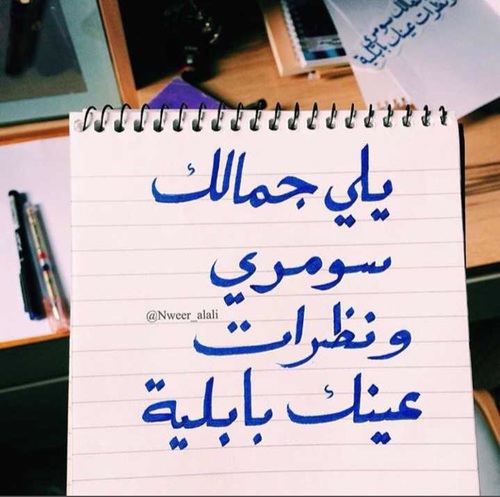 جمالك سومري
ونظرات عينك بابلية
يلي جمالك
سومري
@Nweer_alali
ونظرات
عينك بابلية